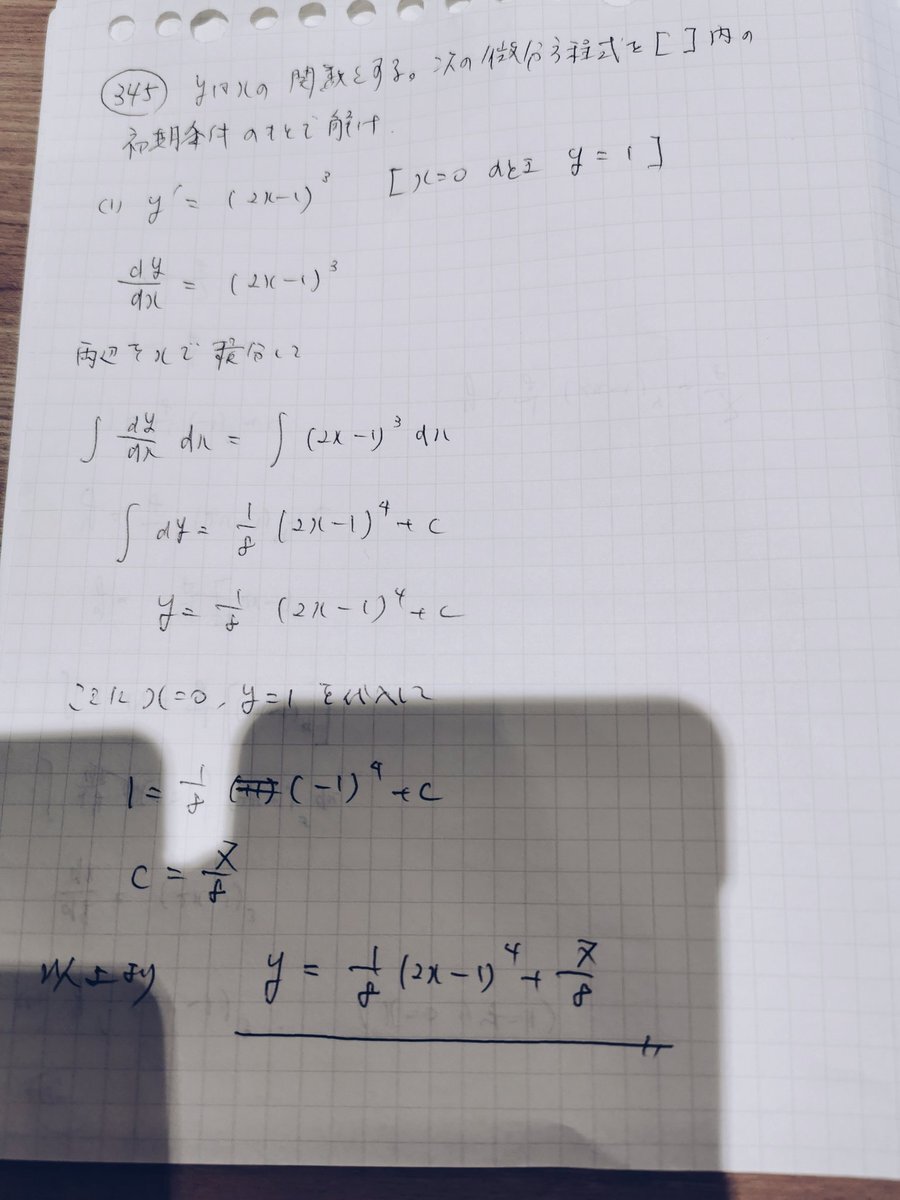 345 yはxの関数とする。次の微分方程式を[ ]内の
初期条件のもとで解け.
(1) y' = (2x-1)^3 [x=0 のとき y = 1]
dy/dx = (2x-1)^3
両辺をxで積分して
∫ dy/dx dx = ∫ (2x-1)^3 dx
∫ dy = 1/8 (2x-1)^4 + C
y = 1/8 (2x-1)^4 + C
これに x=0, y=1 を代入して
1 = 1/8 (-1)^4 + C
C = 7/8
以上より y = 1/8 (2x-1)^4 + 7/8